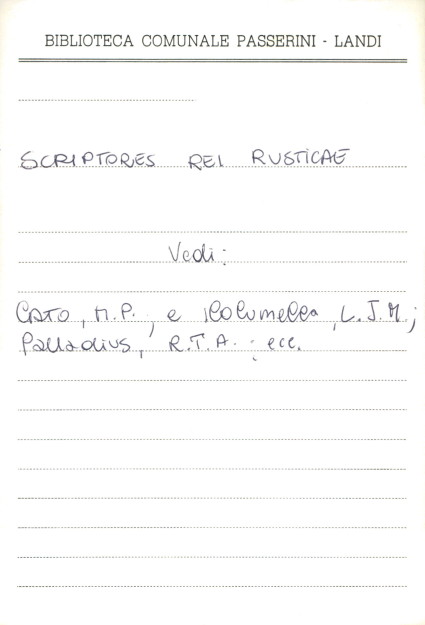 BIBLIOTECA COMUNALE PASSERINI - LANDI
SCRIPTORES REI RUSTICAE
Vedi:
CATO, M.P. ; e Columella, L.J.M.;
Palladius, R.T.A. ; ecc.